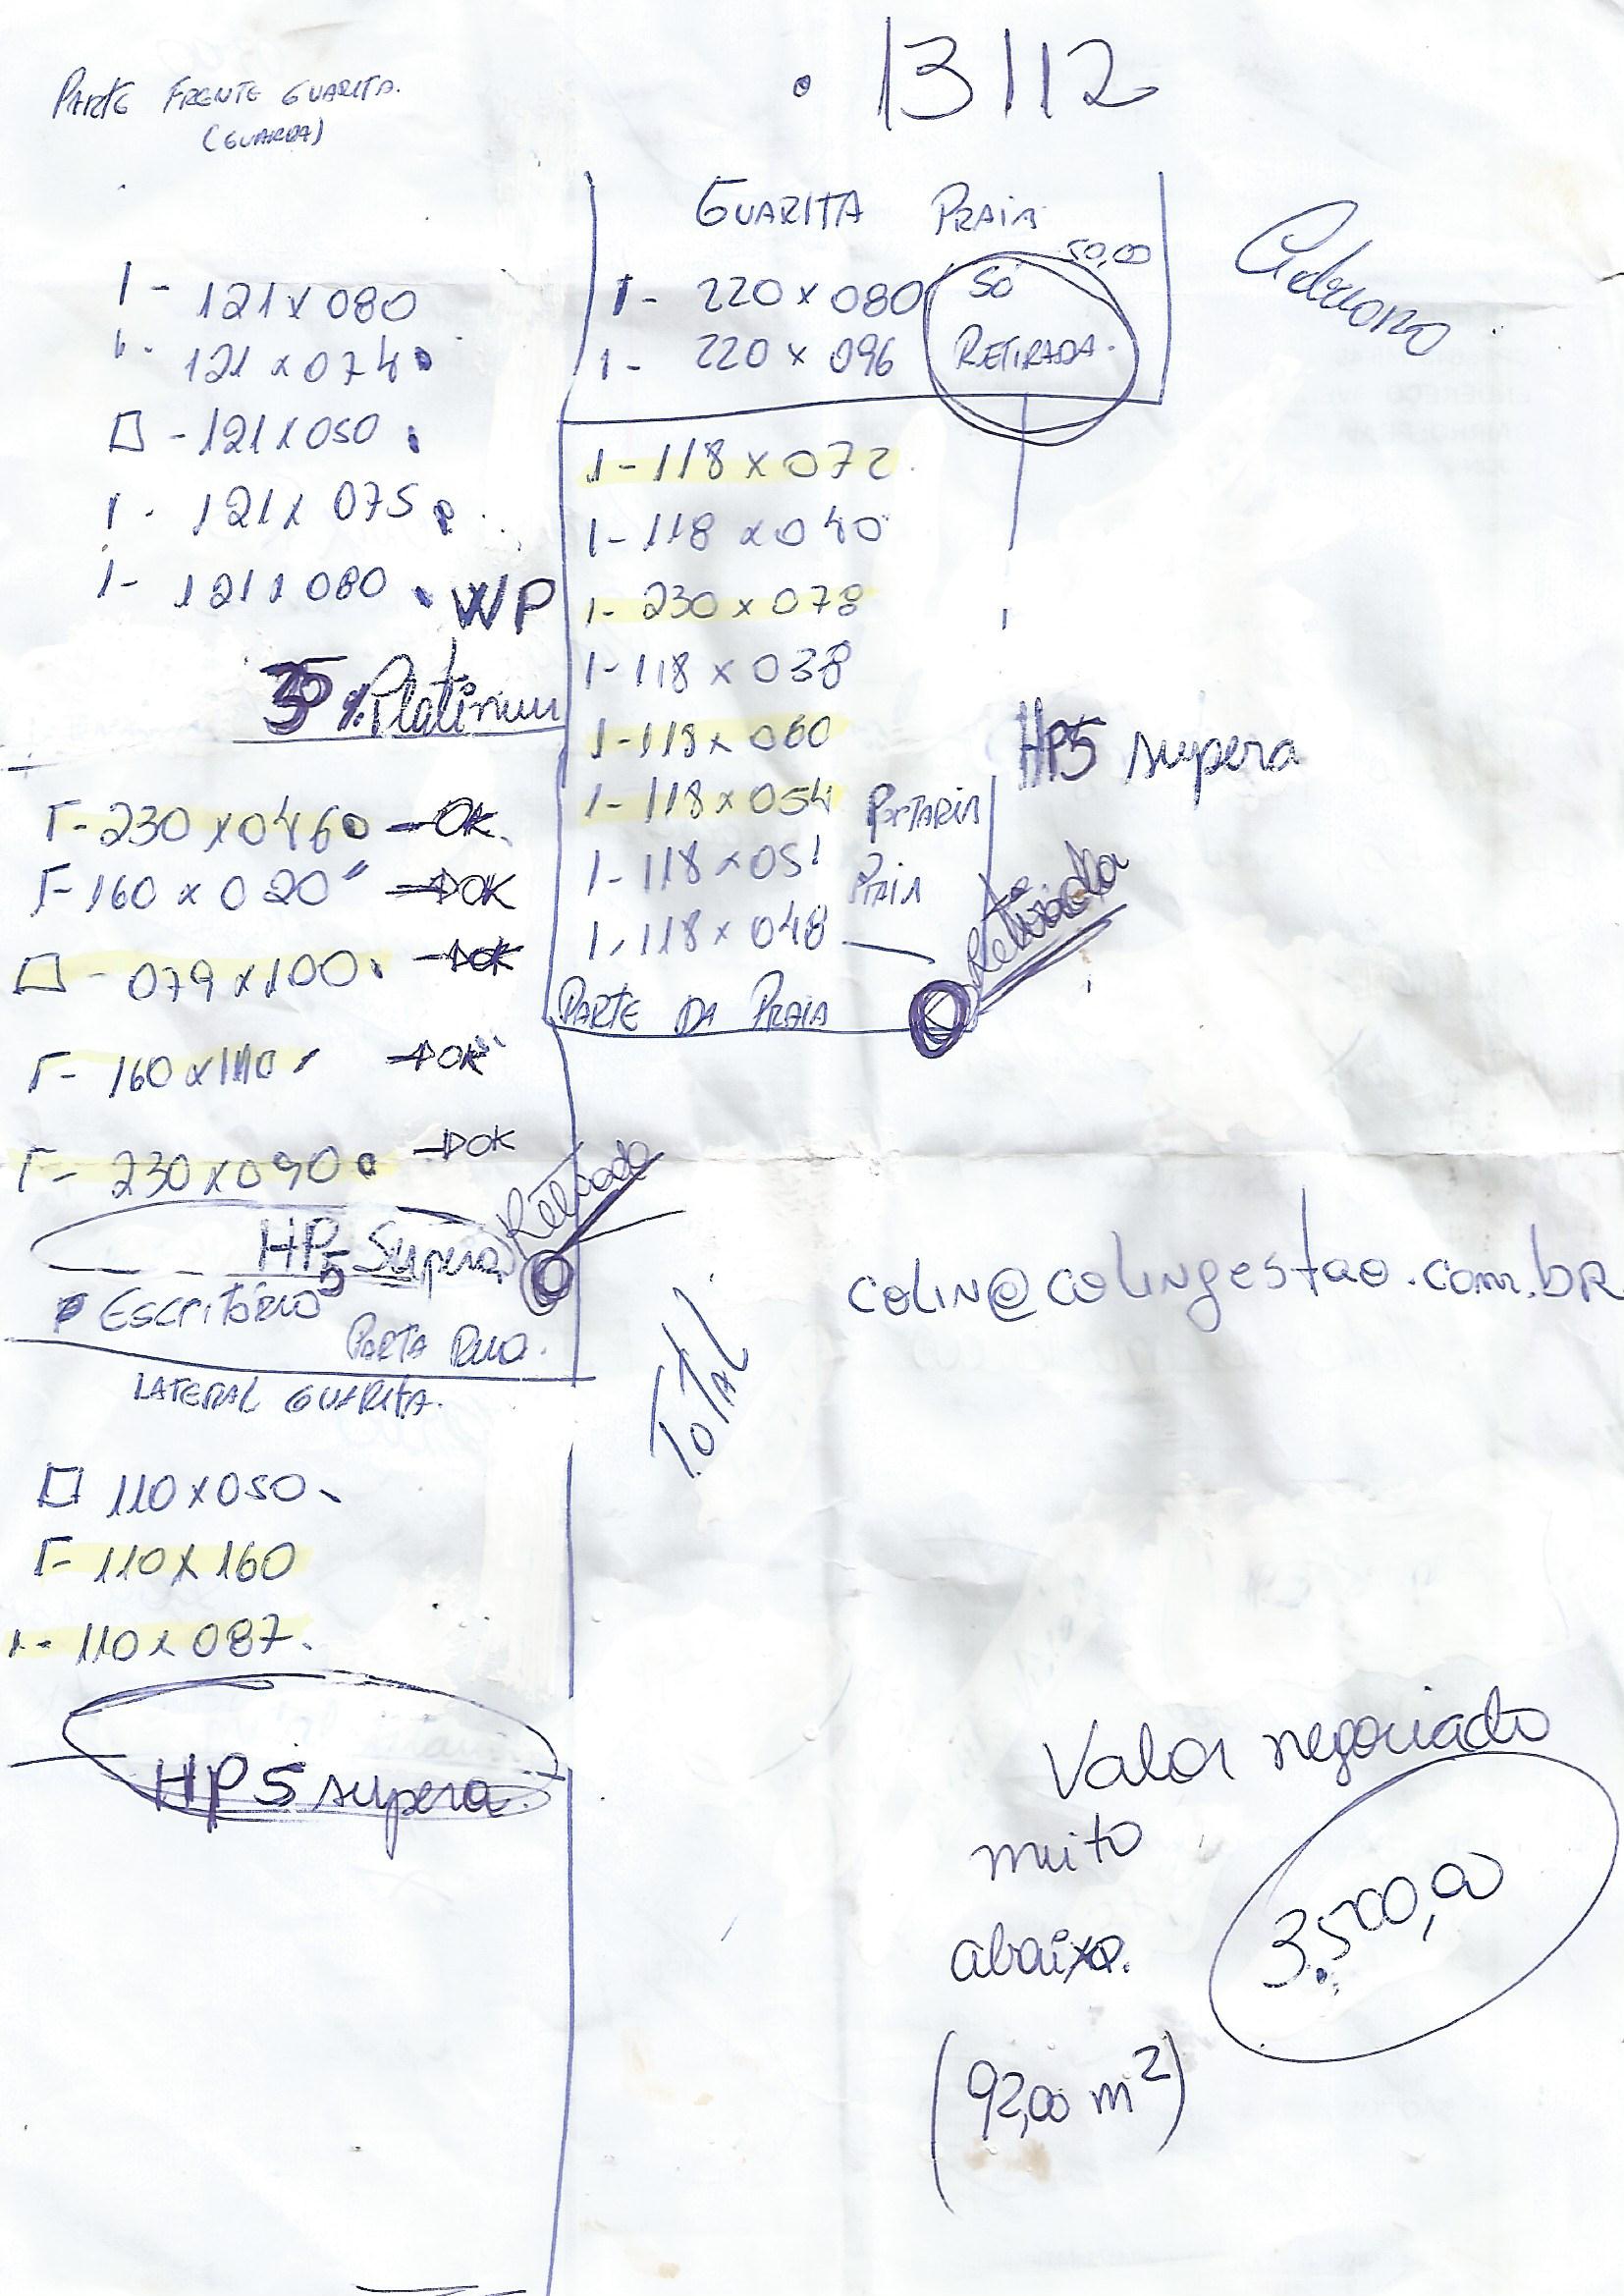 13/12
PARTE FRENTE GUARITA.
(GUARDA)
1- 121x080
1- 121x074
□ -121x050
1- 121x075
1- 121x080 WP
% Platinum
Γ-230x0460 -OK.
Γ-160x020 →OK
□ - 079x100 →OK
Γ- 160x110 →OK
Γ- 230x090 →OK
Retirado
HP5 Supera
ESCRITÓRIO
PORTA RUA.
LATERAL GUARITA.
□ 110x050
Γ- 110x160
1- 110x087.
HP5 supera
GUARITA PRAIA
50,00
1- 220x080 SÓ
1- 220x096 RETIRADA.
Adriano
1-118x072
1-118x040
1- 230x078
1-118x038
1-118x060
1-118x054 PORTARIA
1-118x051 PRAIA
1-118x048
Retirada
PARTE DA PRAIA
HP5 supera
colin@colingestao.com.br
TOTAL
Valor negociado
muito
abaixo.
3.500,00
(92,00 m²)